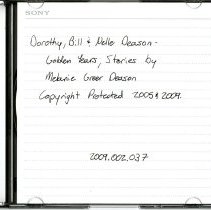 SONY
Dorothy, Bill & Nelle Deason -
Golden Years, Stories by
Melanie Greer Deason
Copyright Protected 2005 & 2009.
2009.002.037